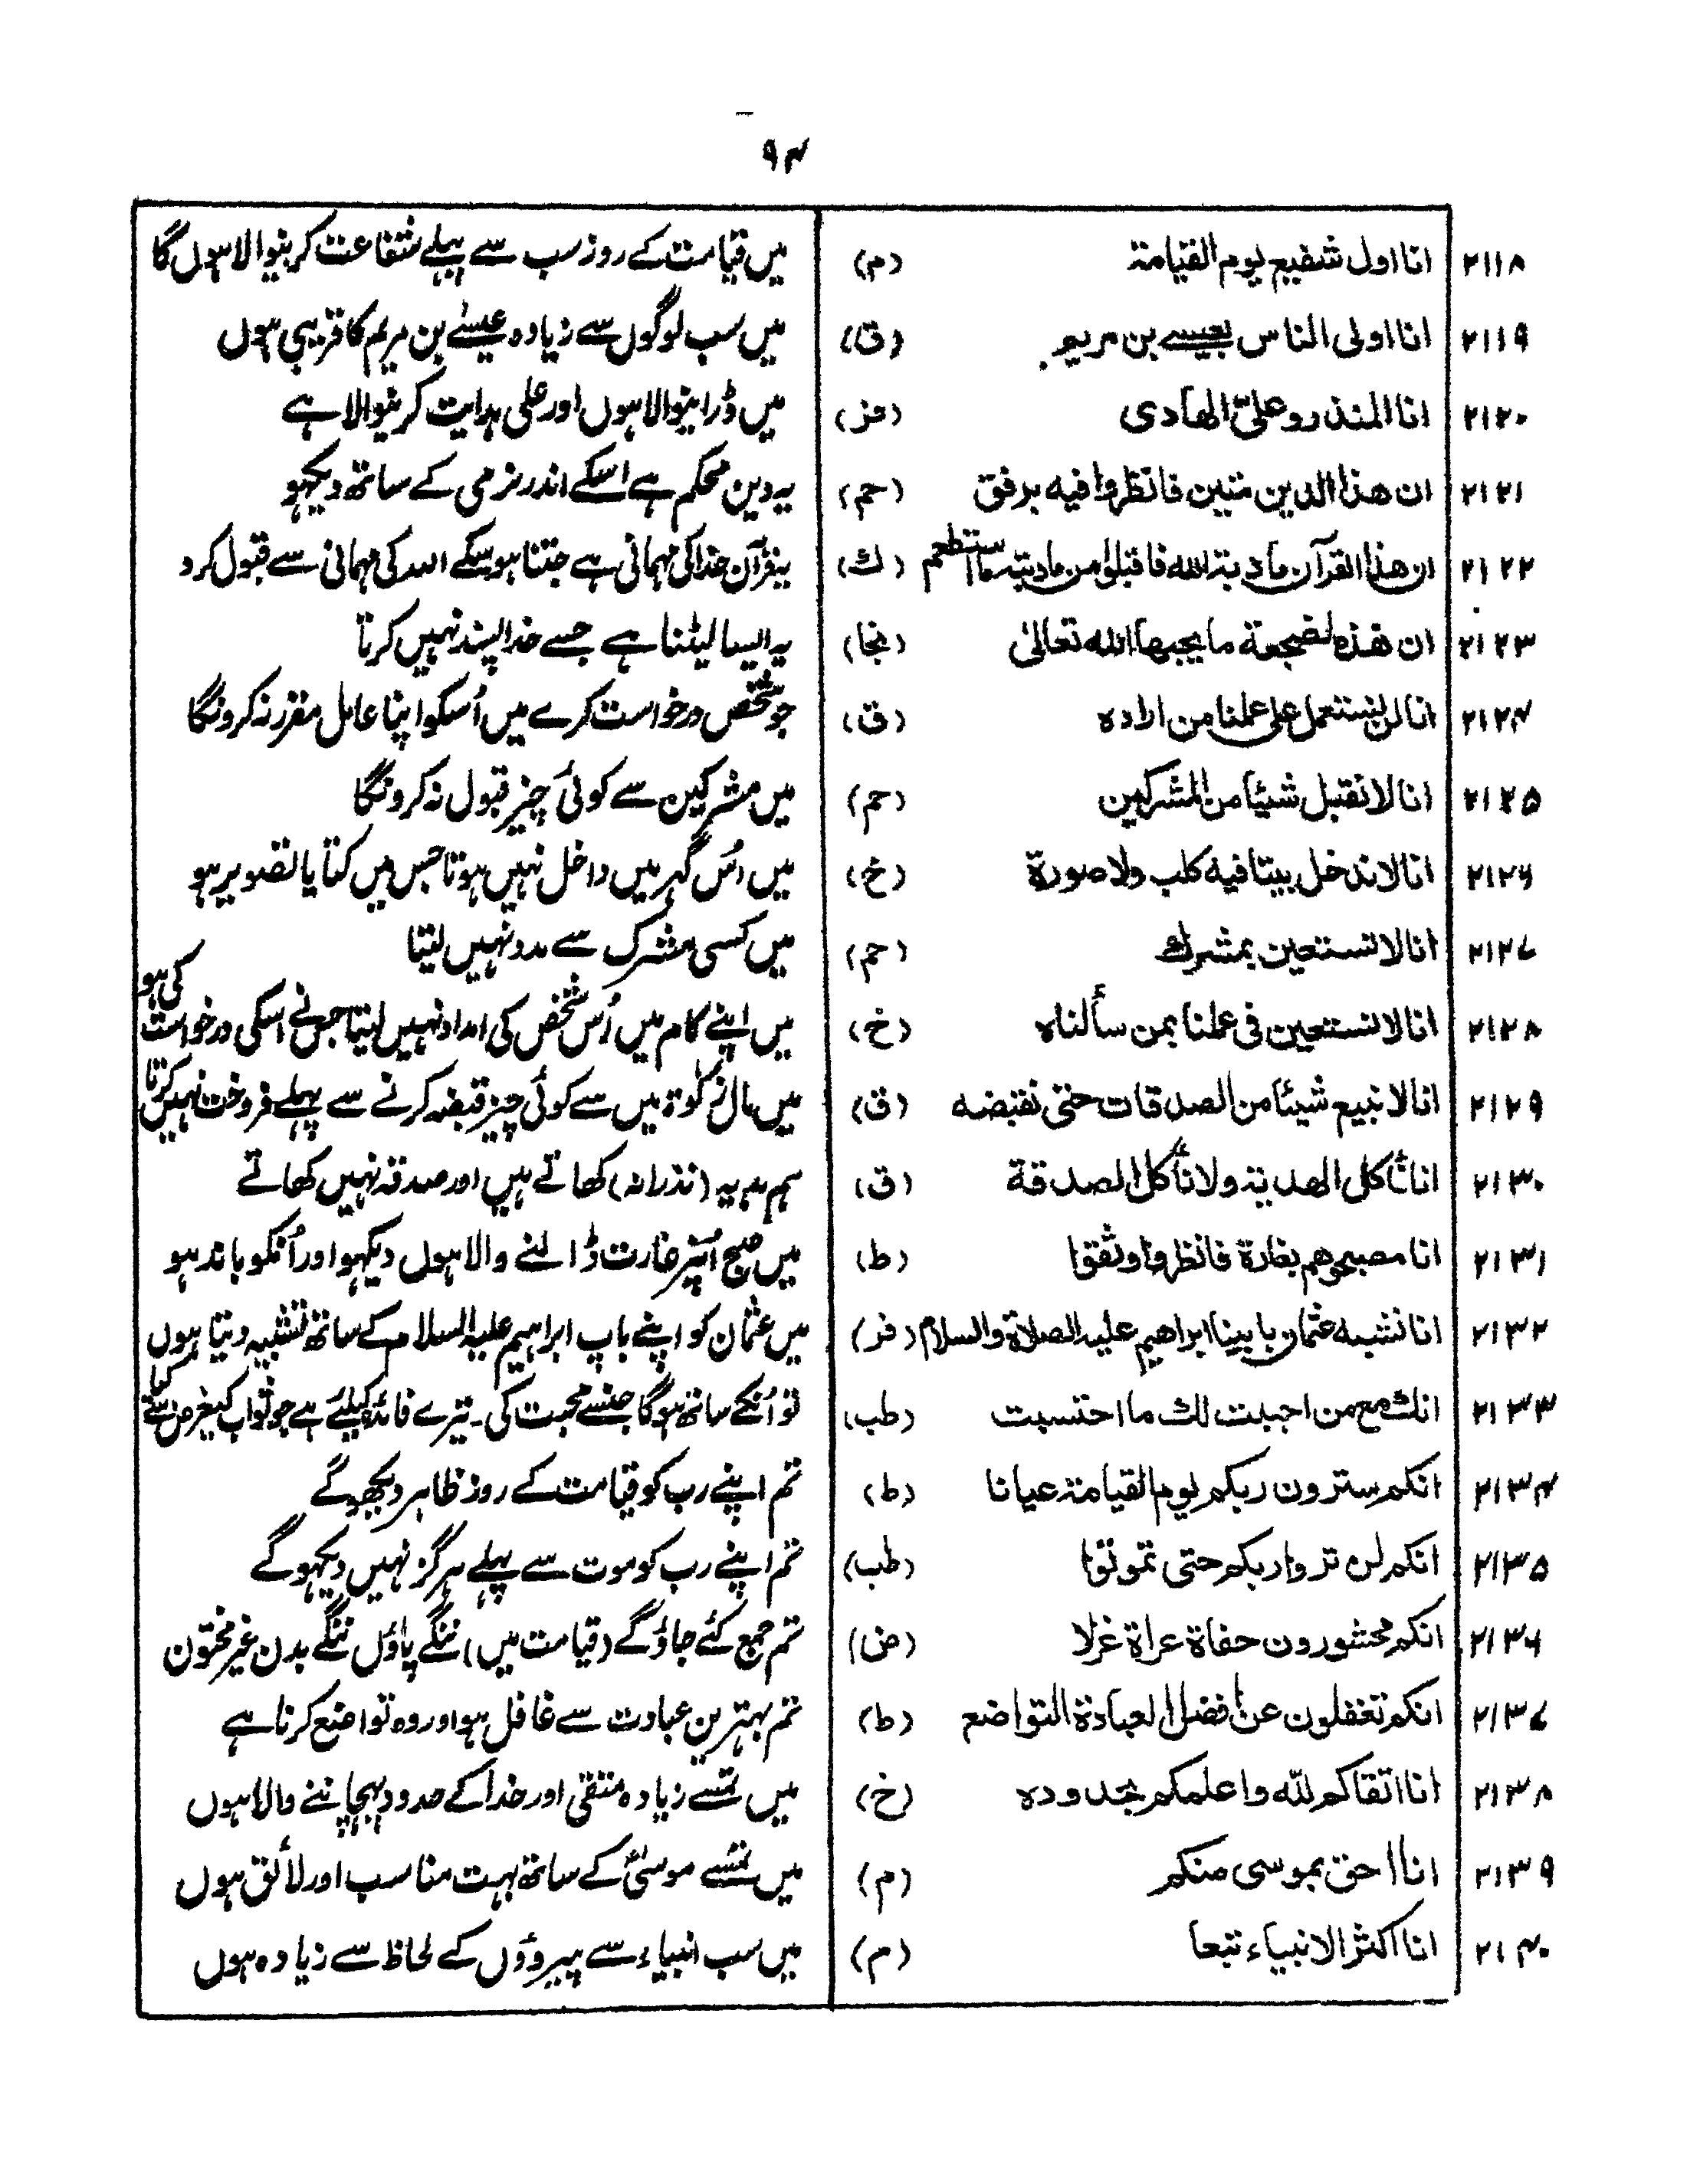 ۹۴
۲۱۱۸ انا اول شفیع یوم القیامة (م) میں قیامت کے روز سب سے پہلے شفاعت کرنیوالا ہوں گا
۲۱۱۹ انا اولی الناس بعیسے بن مریم (ق) میں سب لوگوں سے زیادہ عیسے بن مریم کا قریبی ہوں
۲۱۲۰ انا المنذر وعلیّ الهادی (فر) میں ڈرانیوالا ہوں اور علی ہدایت کرنیوالا ہے
۲۱۲۱ ان هذا الدین متین فانظروا فیه برفق (حم) یہ دین محکم ہے اسکے اندر نرمی کے ساتھ دیکھو
۲۱۲۲ ان هذا القرآن مادبة الله فاقبلوا من مادبته ما استطعم (ك) یہ قرآن خدا کی مہمانی ہے جتنا ہو سکے اللہ کی مہمانی سے قبول کرو
۲۱۲۳ ان هذه لضجعة ما یحبها الله تعالیٰ (نجا) یہ ایسا لیٹنا ہے جسے خدا پسند نہیں کرتا
۲۱۲۴ انا لن نستعمل علی عملنا من اراده (ق) جو شخص درخواست کرے میں اُسکو اپنا عامل مقرر نہ کرونگا
۲۱۲۵ انا لا نقبل شیئا من المشرکین (حم) میں مشرکین سے کوئی چیز قبول نہ کرونگا
۲۱۲۶ انا لا ندخل بیتا فیه کلب ولا صورة (خ) میں اُس گہر میں داخل نہیں ہوتا جس میں کتا یا تصویر ہو
۲۱۲۷ انا لا نستعین بمشرك (حم) میں کسی مشرک سے مدد نہیں لیتا
۲۱۲۸ انا لا نستعین فی عملنا بمن سألناه (خ) میں اپنے کام میں اُس شخص کی امداد نہیں لیتا جس نے اسکی درخواست کی ہو
۲۱۲۹ انا لا نبیع شیئا من الصدقات حتی نقبضه (ق) میں مال زکوٰۃ میں سے کوئی چیز قبضہ کرنے سے پہلے فروخت نہیں کرتا
۲۱۳۰ انا نأکل الهدیة ولا نأکل الصدقة (ق) ہم ہدیہ (نذرانہ) کھاتے ہیں اور صدقہ نہیں کھاتے
۲۱۳۱ انا مصبحوهم بغارة فانظروا وثقوا (ط) میں صبح اُنپر غارت ڈالنے والا ہوں دیکھو اور اُنکو باندہو
۲۱۳۲ انا نشبه عثمان بابینا ابراهیم علیه الصلاة والسلام (فر) میں عثمان کو اپنے باپ ابراہیم علیہ السلام کے ساتھ تشبیہ دیتا ہوں
۲۱۳۳ انك مع من احببت لك ما احتسبت (طب) تو اُنکے ساتھ ہوگا جنسے محبت کی۔ تیرے فائدہ کیلئے ہے جو ثواب کیغرض سے کیا
۲۱۳۴ انکم سترون ربکم یوم القیامة عیانا (ط) تم اپنے رب کو قیامت کے روز ظاہر دیکھو گے
۲۱۳۵ انکم لن تروا ربکم حتی تموتوا (طب) تم اپنے رب کو موت سے پہلے ہرگز نہیں دیکہو گے
۲۱۳۶ انکم محشورون حفاة عراة غرلا (ض) تم جمع کئے جاؤ گے (قیامت میں) ننگے پاؤں ننگے بدن غیر مختون
۲۱۳۷ انکم تغفلون عن افضل العبادة التواضع (ط) تم بہترین عبادت سے غافل ہو اور وہ تواضع کرنا ہے
۲۱۳۸ انا اتقاکم للّه واعلمکم بحدوده (خ) میں تمسے زیادہ متقی اور خدا کے حدود پہچاننے والا ہوں
۲۱۳۹ انا احق بموسی منکم (م) میں تمسے موسیٰ کے ساتھ بہت مناسب اور لائق ہوں
۲۱۴۰ انا اکثر الانبیاء تبعا (م) میں سب انبیاء سے پیرووں کے لحاظ سے زیادہ ہوں